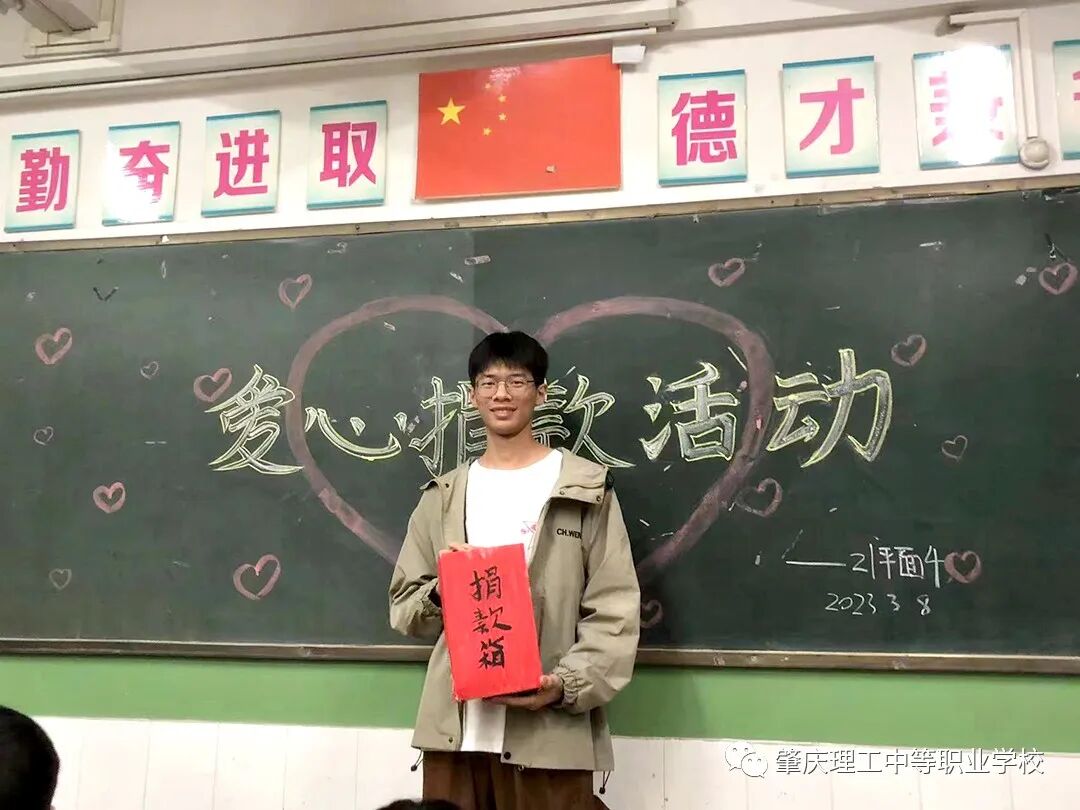 勤奋进取 德才兼
爱心捐款活动
CH.WEN
捐款箱
——21平面4
2023 3 8
肇庆理工中等职业学校